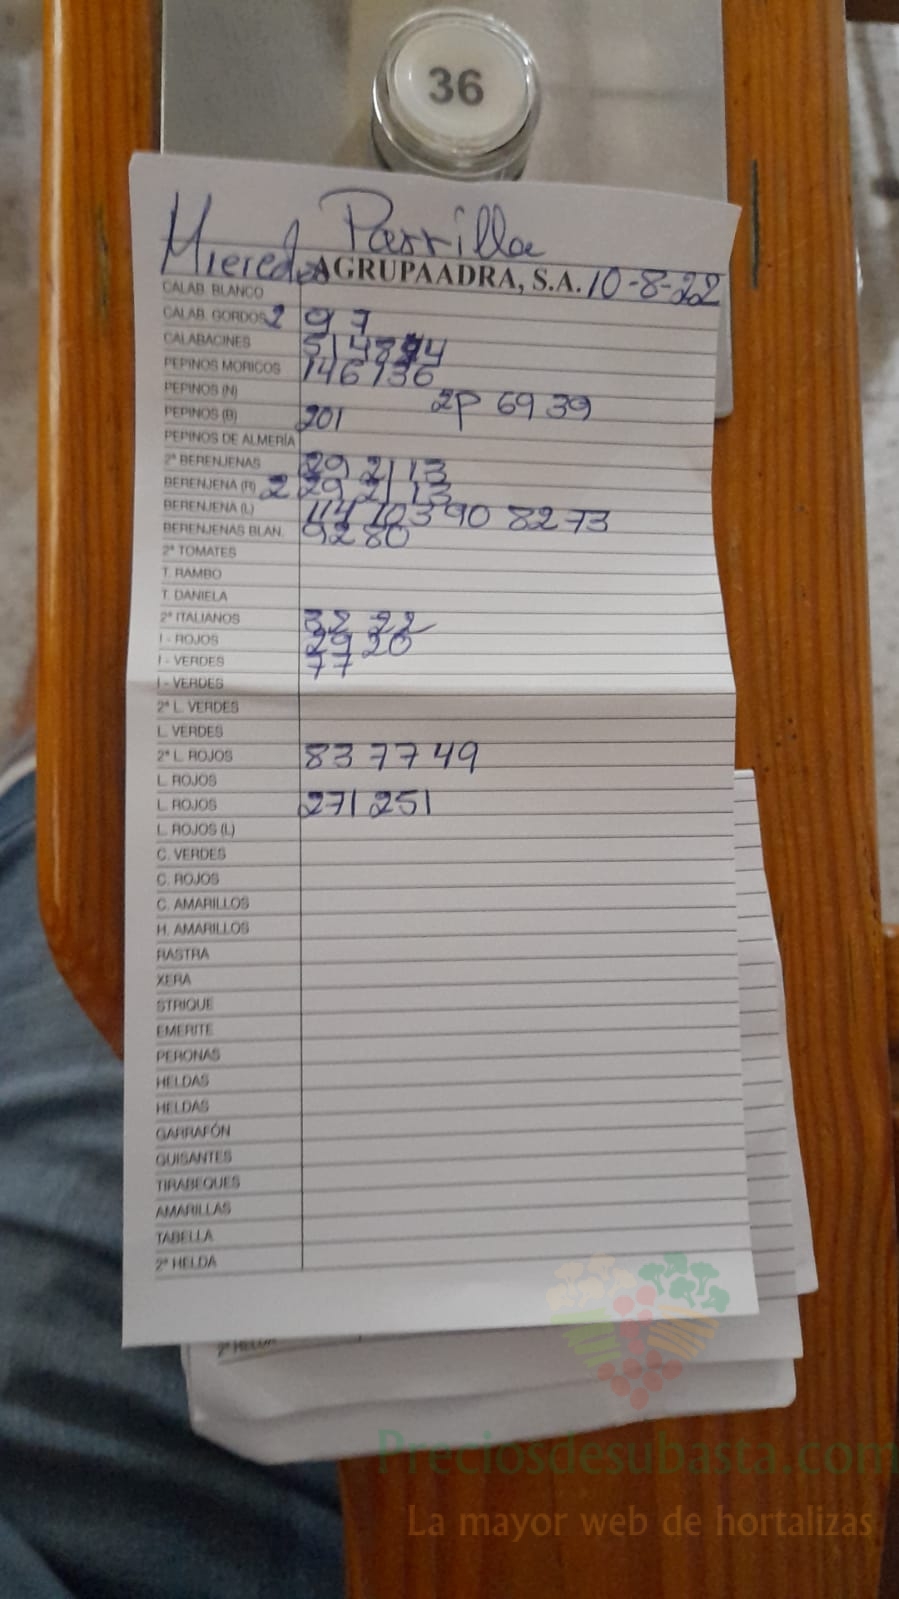 36
Parrilla
Miercoles AGRUPAADRA, S.A. 10-8-22
CALAB. BLANCO
CALAB. GORDOS 2 9 7
CALABACINES 51 48 44
PEPINOS MORICOS 146 136
PEPINOS (N) 2P 69 39
PEPINOS (B) 201
PEPINOS DE ALMERÍA
2ª BERENJENAS 29 21 13
BERENJENA (R) 2 29 21 13
BERENJENA (L) 114 103 90 82 73
BERENJENAS BLAN. 92 80
2ª TOMATES
T. RAMBO
T. DANIELA
2ª ITALIANOS 32 22
I - ROJOS 29 20
I - VERDES 77
I - VERDES
2ª L. VERDES
L. VERDES
2ª L. ROJOS 83 77 49
L. ROJOS
L. ROJOS 271 251
L. ROJOS (L)
C. VERDES
C. ROJOS
C. AMARILLOS
H. AMARILLOS
RASTRA
XERA
STRIQUE
EMERITE
PERONAS
HELDAS
HELDAS
GARRAFÓN
GUISANTES
TIRABEQUES
AMARILLAS
TABELLA
2ª HELDA
2ª HELDA
Preciosdesubasta.com
La mayor web de hortalizas